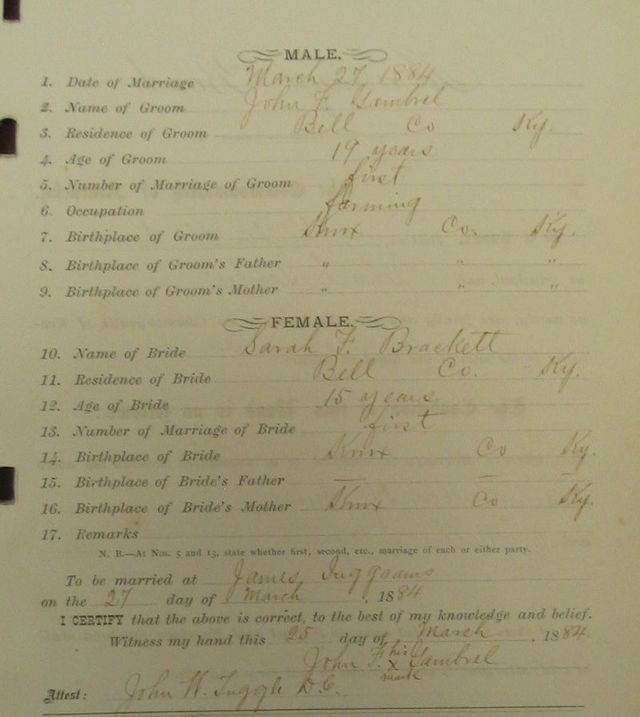 MALE.
1. Date of Marriage March 27, 1884
2. Name of Groom John F. Gambrel
3. Residence of Groom Bell Co Ky.
4. Age of Groom 19 years
5. Number of Marriage of Groom first
6. Occupation farming
7. Birthplace of Groom Knox Co. Ky.
8. Birthplace of Groom's Father " " "
9. Birthplace of Groom's Mother " " "
FEMALE.
10. Name of Bride Sarah F. Brackett
11. Residence of Bride Bell Co. Ky.
12. Age of Bride 15 years
13. Number of Marriage of Bride first
14. Birthplace of Bride Knox Co Ky.
15. Birthplace of Bride's Father — — —
16. Birthplace of Bride's Mother Knox Co Ky.
17. Remarks
N. B.—At Nos. 5 and 13, state whether first, second, etc., marriage of each or either party.
To be married at James
on the 27 day of March, 1884
I CERTIFY that the above is correct, to the best of my knowledge and belief.
Witness my hand this 25 day of March, 1884.
John F. his x mark Gambrel
Attest: John W. Tuggle D.C.